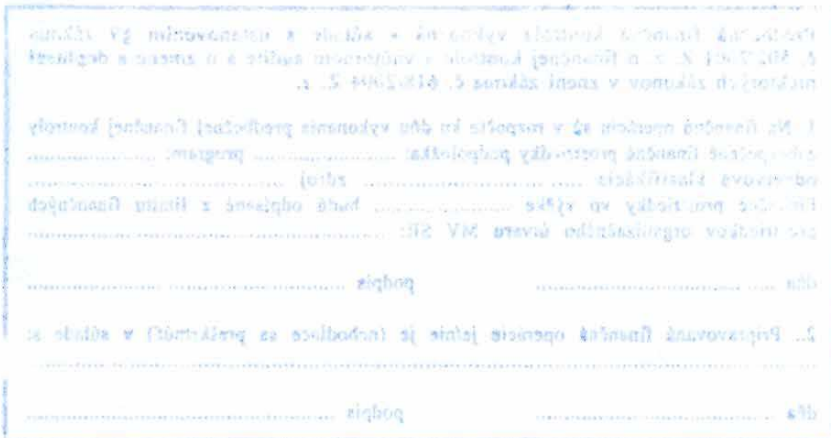 Predbežná finančná kontrola vykonaná v súlade s ustanovením §9 zákona
č. 502/2001 Z. z. o finančnej kontrole a vnútornom audite a o zmene a doplnení
niektorých zákonov v znení zákona č. 618/2004 Z. z.
1. Na finančnú operáciu sú v rozpočte ku dňu vykonania predbežnej finančnej kontroly
zabezpečené finančné prostriedky podpoložka: .................... program: ....................
odvetvová klasifikácia .................... zdroj ....................
finančné prostriedky vo výške .................... budú odpísané z limitu finančných
prostriedkov organizačného útvaru MV SR: ....................
dňa .................... podpis ....................
2.. Pripravovaná finančná operácia je/nie je (nehodiace sa preškrtnúť) v súlade s:
....................
dňa .................... podpis ....................